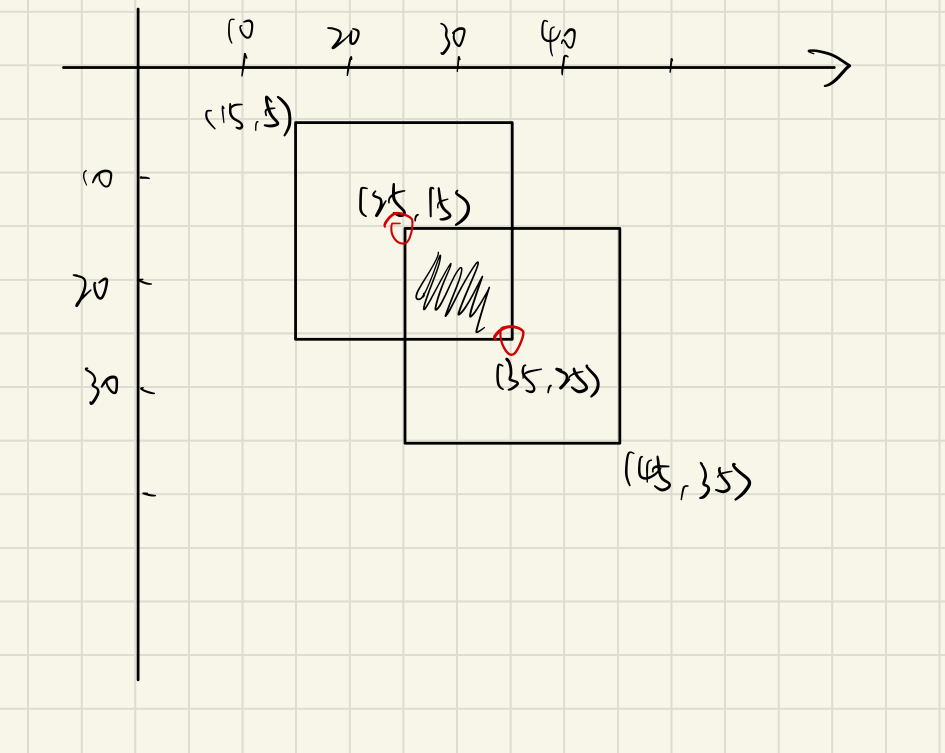 10 20 30 40
(15,5)
10
(25,15)
20
30
(35,25)
(45,35)